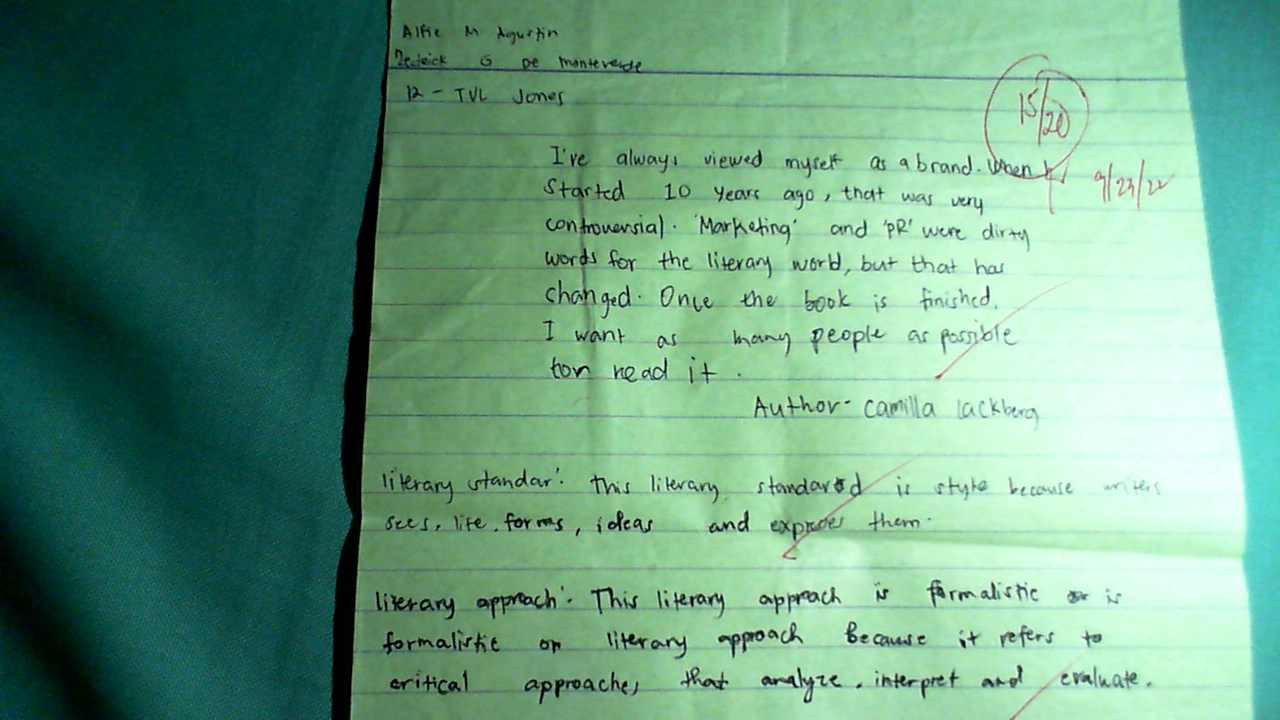 Alfie M. Agustin
Dedrick G De Monteverde
12 - TVL Jones
15/20
I've always viewed myself as a brand. When I
9/23/22
Started 10 years ago, that was very
controversial. 'Marketing' and 'PR' were dirty
words for the literary world, but that has
changed. Once the book is finished.
I want as many people as possible
ton read it.
Author- Camilla Lackberg
literary standar: This literary standard is style because writers
sees, life, forms, ideas and expreses them.
literary approach: This literary approach is formalistic or is
formalistic on literary approach because it refers to
critical approaches that analyze, interpret and evaluate.